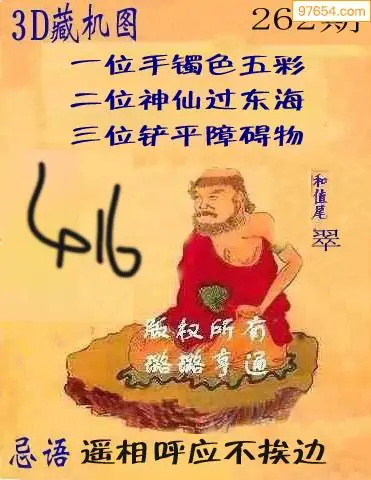 97654.com
3D藏机图 262期
一位手镯色五彩
二位神仙过东海
三位铲平障碍物
416
和值尾
翠
版权所有
璐璐亨通
忌语 遥相呼应不挨边